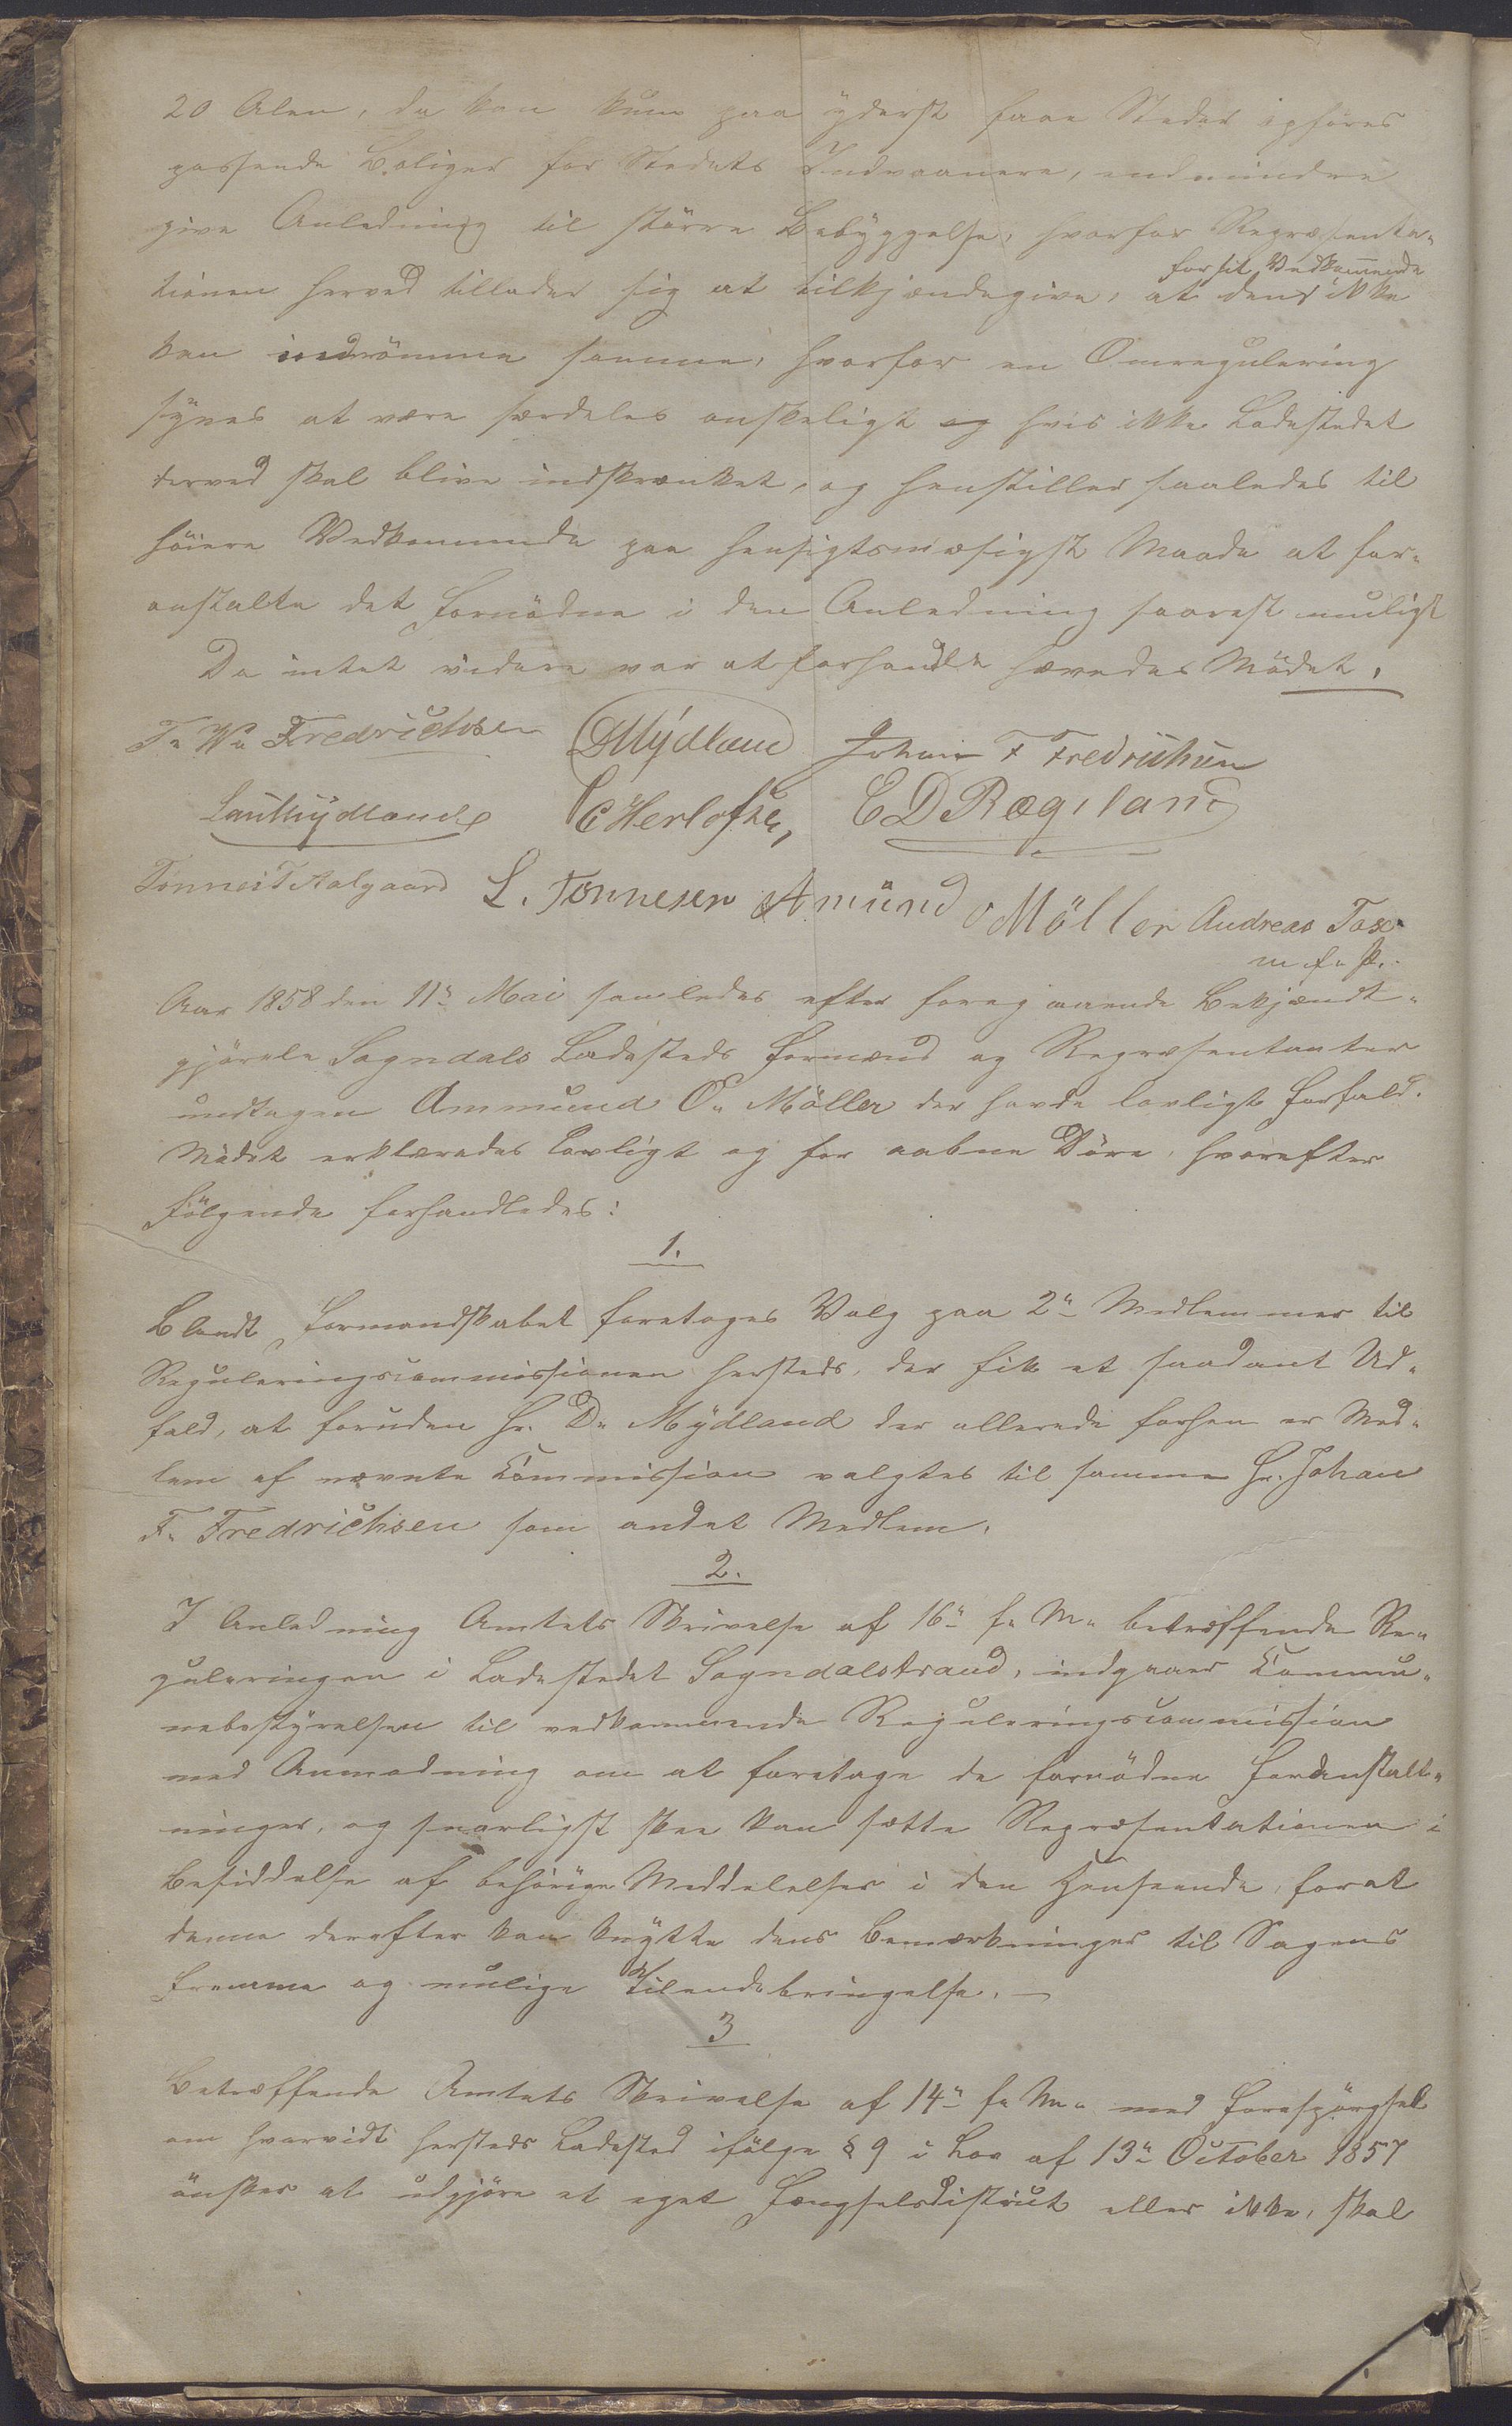 20 Alen, da kan kun paa yderst faae Steder opføres
passende Boliger for Stedets Indvaanere, endmindre
give Anledning til större Bebyggelse, hvorfor Repræsenta-
tionen herved tillader sig at tilkjendegive, at den for sit Vedkommende ikke
kan indrömme samme, hvorfor en Omregulering
synes at være særdeles onskeligt og hvis ikke Ladestedet
derved skal blive indskrænket, og henstiller saaledes til
höiere Vedkommende paa hensigtsmæsigst Maade at for-
anstalte det fornödne i den Anledning snarest muligt
Da intet videre var at forhandle hævedes Mödet.
F. W. Fredrichsen DMydland Johan F Fredrichsen
Lau Mydland C Herlofsen, E D Rægeland
Tonnes T Aalgaard L. Tonnesen Amund O Möller Andreas Tox
m. f. P.
Aar 1858 den 11te Mai samledes efter foregaaende Bekjendt-
gjörelse Sogndals Ladesteds Formænd og Repræsentanter
undtagen Ammund O. Möller der havde lovligt Forfald.
Mödet erklæredes lovligt og for aabne Döre, hvorefter
Fölgende forhandledes:
1.
Blandt Formandskabet foretoges Valg paa 2de Medlemmer til
Reguleringscommissionen hersteds, der fik et saadant Ud-
fald, at foruden Hr. D. Mydland der allerede forhen er Med-
lem af nævnte Commission valgtes til samme Hr. Johan
F. Fredrichsen som andet Medlem.
2.
I Anledning Amtets Skrivelse af 16de f. M. betræffende Re-
guleringen i Ladestedet Sogndalstrand, indgaaer Commu-
nebestyrelsen til vedkommende Reguleringscommission
med Anmodning om at foretage de fornödne Foranstalt-
ninger, og snarligst skee kan sætte Repræsentationen i
Besiddelse af behörige Meddelelser i den Henseende, forat
denne derefter kan knytte dens Bemærkninger til Sagens
Fremme og mulige Tilendebringelse. —
3
Betræffende Amtets Skrivelse af 14de f. M. med Forespörgsel
om hvorvidt hersteds Ladested ifölge § 9 i Lov af 13de October 1857
önskes at udgjöre et eget Fængselsdistrict eller ikke, skal